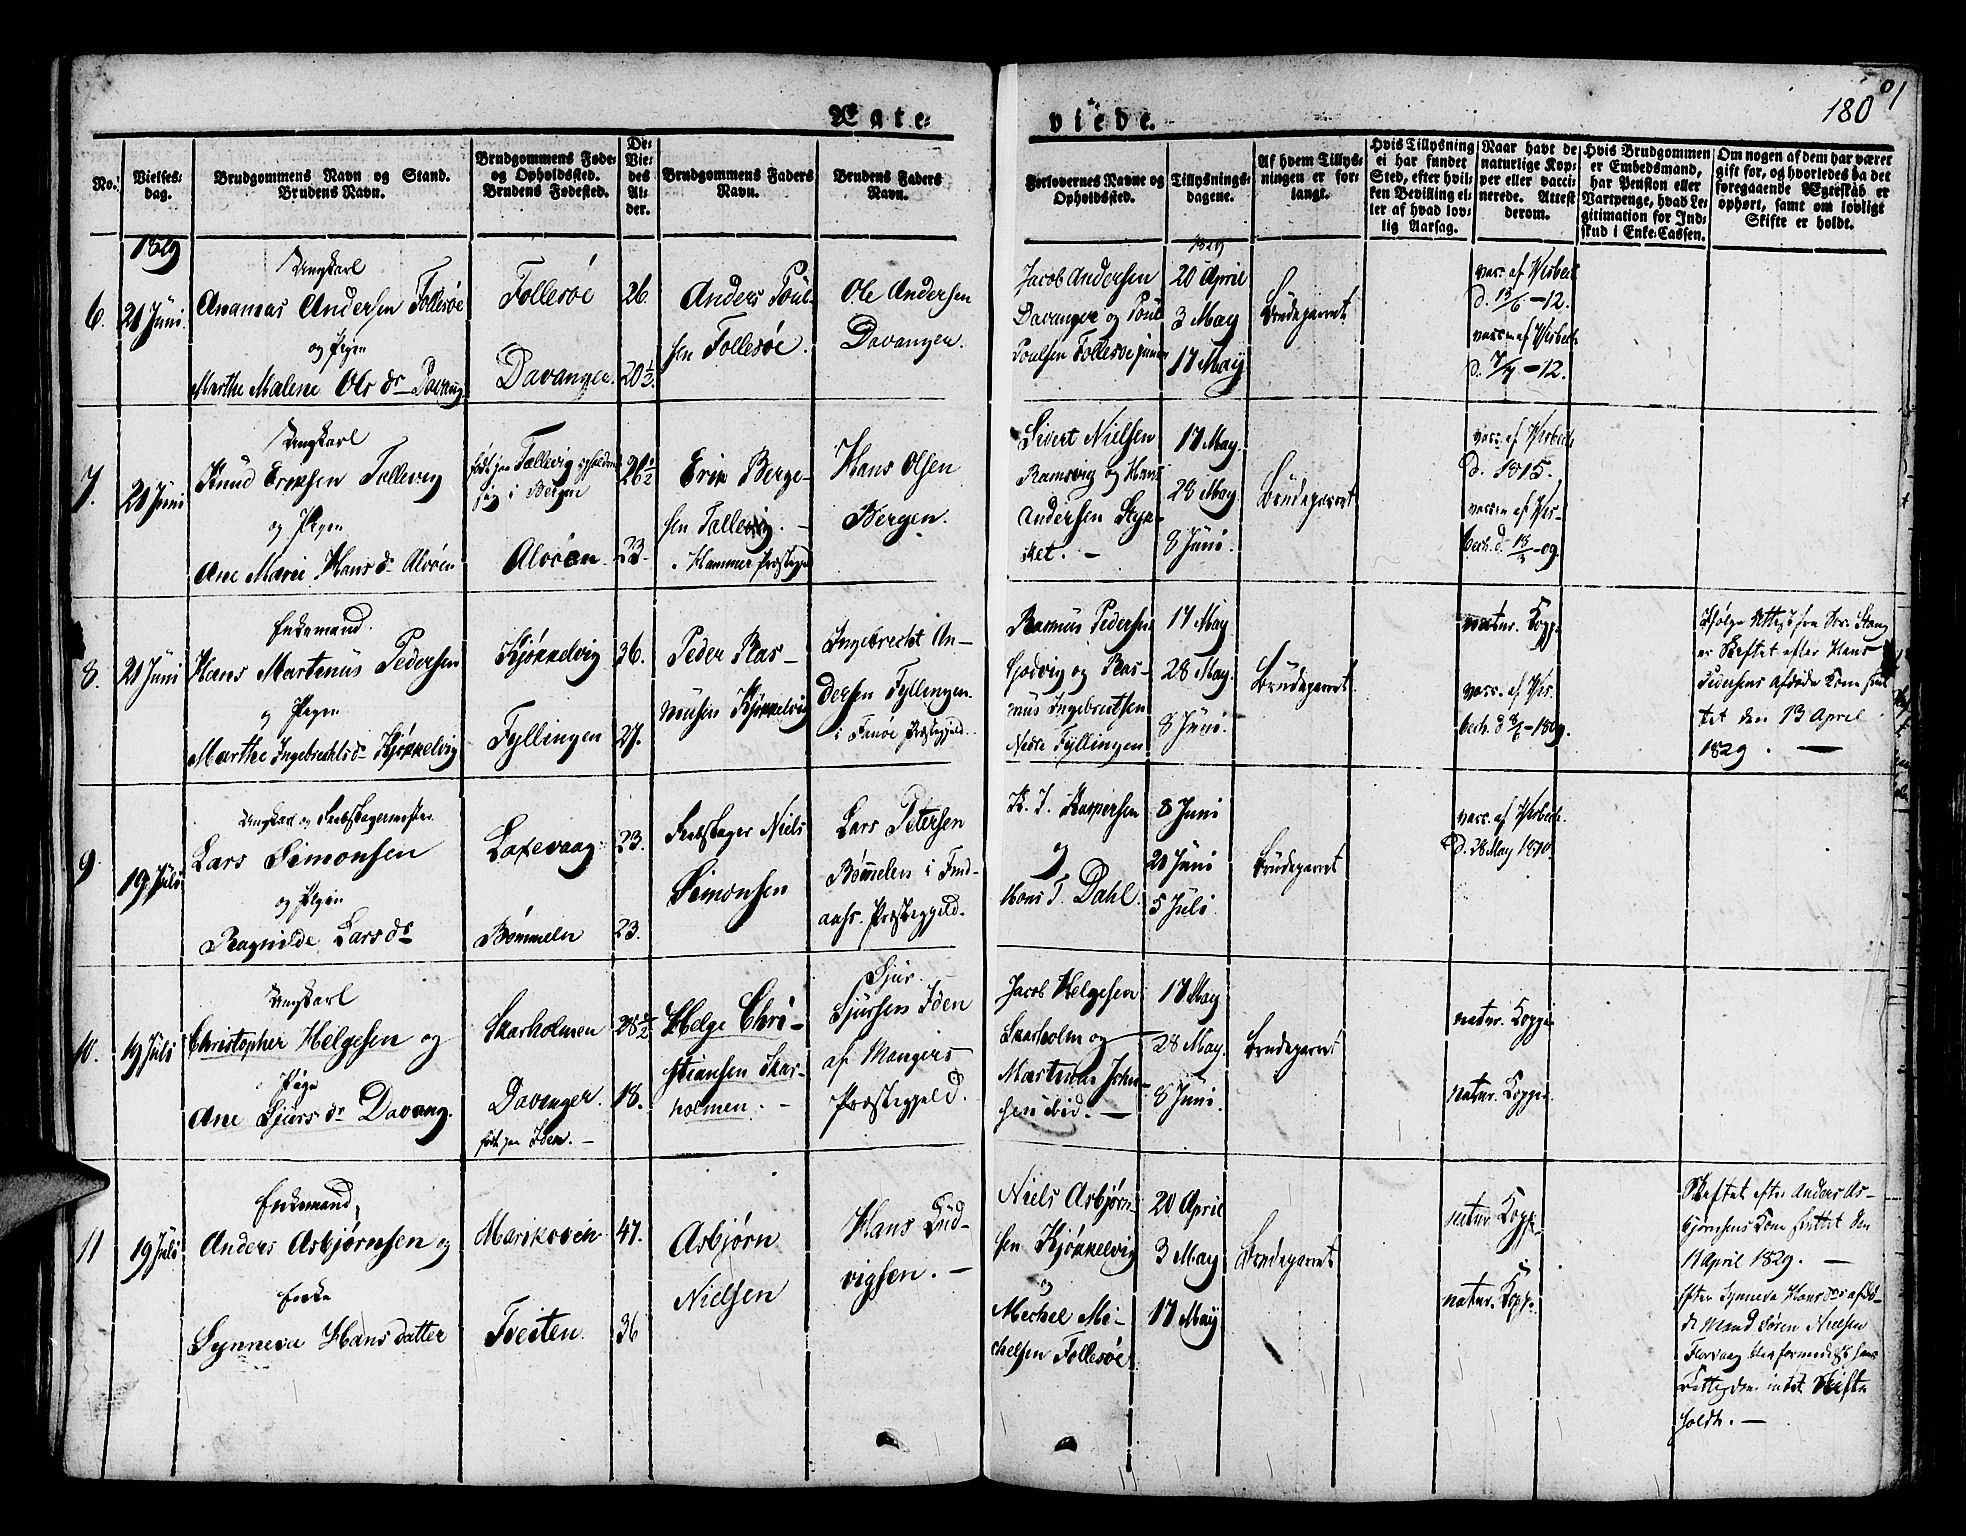 Ægte-
viede.
180
No.
Vielses-
dag.
Brudgommens Navn og Stand.
Brudens Navn.
Brudgommens Føde-
og Opholdssted.
Brudens Fødested.
De
Vie-
des
Al-
der.
Brudgommens Faders
Navn.
Brudens Faders
Navn.
Forlovernes Navne og
Opholdssted.
Tillysnings-
dagene.
Af hvem Tillys-
ningen er for-
langt.
Hvis Tillysning
ei har fundet
Sted, efter hvil-
ken Bevilling el-
ler af hvad lov-
lig Aarsag.
Naar havt de
naturlige Kop-
per eller vacci-
nerede. Attest
derom.
Hvis Brudgommen
er Embedsmand,
har Pension eller
Vartpenge, hvad Le-
gitimation for Ind-
skud i Enke-Cassen.
Om nogen af dem har været
gift før, og hvorledes da det
foregaaende Ægteskab er
ophørt, samt om lovligt
Skifte er holdt.
1829
6.
21 Juni
Ungkarl
Ananias Andersen Follesøe
og Pigen
Marthe Malene Ols dr Davang
Follesøe
Davanger
26
20 1/2
Anders Poul-
sen Follesøe.
Ole Andersen
Davanger.
Jacob Andersen
Davanger og Poul
Poulsen Follesøe junior
1829
20 April
3 May
17 May
Brudegommet
vacc. af Wisbech
d. 13/6 - 12.
vaccin af Wisbech
d. 7/7 - 12.
7.
21 Juni
Ungkarl
Knud Eriksen Tollevig
og Pigen
Ane Marie Hans dr Alvøen
født paa Tællevig opholder
sig i Bergen
Alvøen
26 1/2
23.
Erik Berge-
sen Tællevig. -
Hammer Præstegj
Hans Olsen
Bergen.
Sivert Nielsen
Ramsvig og Hans
Andersen Skya-
sket. -
17 May.
28 May.
8 Juni.
Brudegommet
vacc. af Wisbech
d. 1815.
vaccin af Wis-
bech d. 13/7 - 09.
8.
21 Juni
Enkemand.
Hans Martenus Pedersen
og Pigen
Marthe Ingebrechtsdr Kjøkkelvig
Kjøkkelvig
Fyllingen
36.
27.
Peder Ras-
musen Kjøkkelvig
Ingebrecht An-
dersen Fyllingen
i Finøe Præstegjeld.
Rasmus Pedersen
Hodvig og Ras-
mus Ingebrectsen
Nedre Fyllingen
17 May
28 May.
8 Juni.
Brudegommet
natur. Kopp
vacc. af Wis-
bech. d 8/6 - 1809.
Ifølge Attest fra Srv. Stang
er Skiftet efter Hans
Pedersens afdøde Kone slut-
tet den 13 April
1829. -
9
19 Juli
Ungkarl og Reebslagermester
Lars Simonsen
og Pigen
Ragnilde Lars dr
Laxevaag
Bømmelen
23.
23.
Reebslager Niels
Simonsen
Lars Petersen
Bømmelen i Find-
aahs. Præstegjeld.
K. J. Kaspersen
og
Hans T. Dahl.
8 Juni
21 Juni
5 Juli
Brudegommet
vacc. af Wisbech.
d. 28 May 1810.
10.
19 Juli
Ungkarl
Christopher Helgesen og
Pige
Ane Sjurs dr Davang.
Skarholmen
Davanger.
født paa Iden. -
28 1/2
18.
Helge Chri-
stiansen Skar-
holmen. -
Sjur
Sjursen Iden
af Mangers
Præstegjeld.
Jacob Helgesen
Skarholm og
Martinus John-
sen ibid. -
17 May
28 May.
8 Juni.
Brudegommet
natur. Koppe
natur. Koppe.
11
19 Juli
Enkemand,
Anders Asbjørnsen og
Enke
Synneva Hans datter
Marikoven
Tveiten.
47.
36
Asbjørn
Nielsen
Hans Lud-
vigsen. -
Niels Asbjørn-
sen Kjøkkelvig
og
Mechel Mi-
chelsen Follesøe
20 April
3 May
17 May
Brudegommet
natur. Kopp.
natur. Kopp.
Skiftet efter Anders As-
bjørnsens Kone sluttet den
11 April 1829. -
efter Synneva Hans drs afdø-
de Mand Søren Nielsen
Florvaag blev formedelst hans
Fattigdom intet Skifte
holdt. -